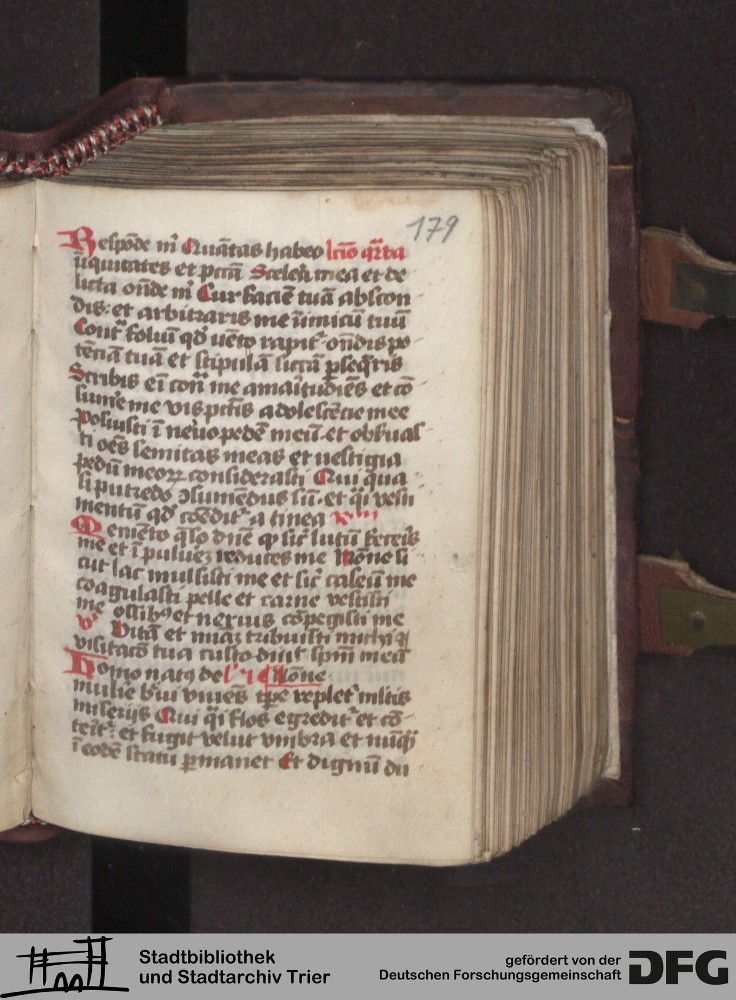 179
Respōde m̄ Quātas habeo lc̄io q̄rta
īiquitates et pctā Scelera mea et de
licta oñde m̄ Cur faciē tuā abscon
dis: et arbitraris me inimicū tuū
Contᷓ foliū qd̓ uēto rapit᷑ oñdis po
tēciā tuā et stipulā siccā ꝑseq̄ris
Scribis eī cont̄ me amaritudīēs et cō
sum̄e me vis pctīs adolescēcie mee
Posuisti ī neruo pedē meū et obs̓uas
ti oēs semitas meas et uestigia
pedū meoꝝ considerasti Qui qua
si putredo ↄsumēdus sū et q̄i vesti
mentū qd̓ comēdit᷑ a tinea
Memēto q̄so dn̄e ꝙ sic̄ lutū feceris
me et ī pulueꝝ reduces me Nōne si
cut lac mulsisti me et sic̄ caseū me
coagulasti pelle et carne vestisti
me ossibꝰ et neruis cōpegisti me
vˢ Vitā et mi̅am tribuisti michi ⁊
visitacō tua custodiuit spm̄ meū
Homo natꝰ de Nōne
mulie̓ b̓ui viuēs tꝑe replet᷑ ml̄tis
miserijs Qui q̄i flos egredit᷑ et cō
terit᷑: et fugit velut vmbra et nūq̄
ī eodē statu ꝑmanet Et dignū du
Stadtbibliothek
und Stadtarchiv Trier
gefördert von der
Deutschen Forschungsgemeinschaft
DFG